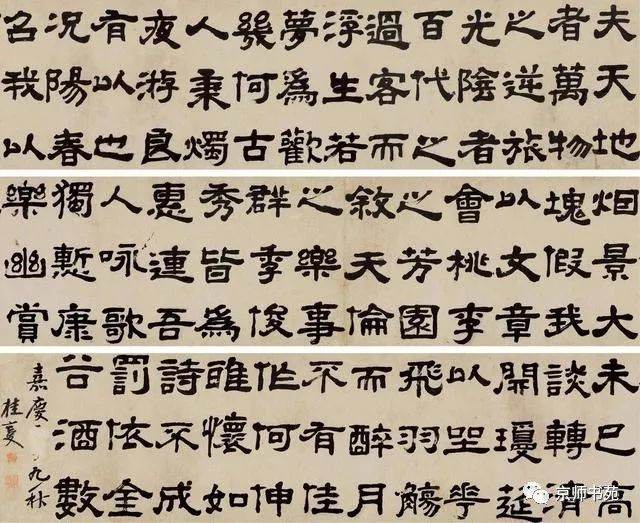 夫天地
者萬物
之逆旅
光陰者
百代之
過客而
浮生若
夢爲歡
幾何古
人秉燭
夜游良
有以也
況陽春
召我以
烟景大
塊假我
以文章
會桃李
之芳園
敘天倫
之樂事
群季俊
秀皆爲
惠連吾
人咏歌
獨慙康
樂幽賞
未已高
談轉清
開瓊筵
以坐花
飛羽觴
而醉月
不有佳
作何伸
雅懷如
詩不成
罰依金
谷酒數
嘉慶九秋
桂馥
京师书苑